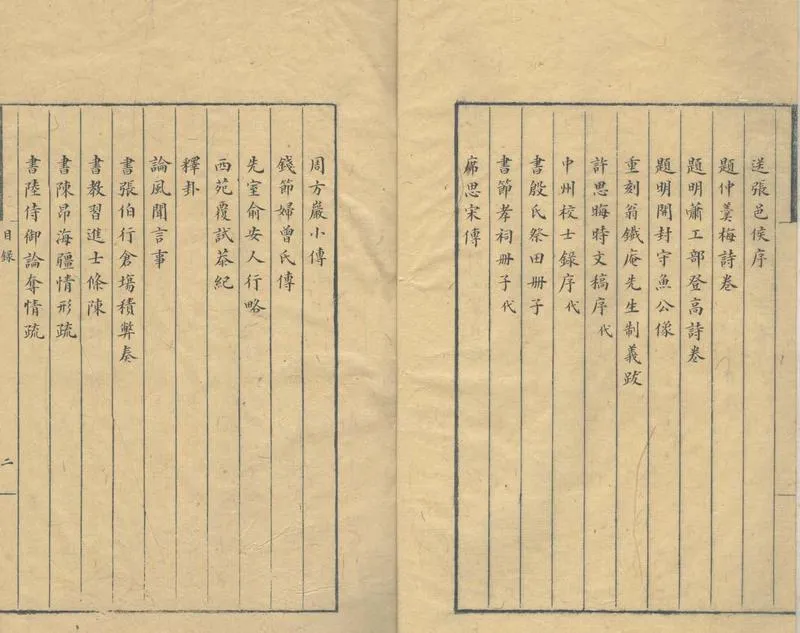 送張邑侯序
題仲羮梅詩卷
題明蕭工部登高詩卷
題明開封守魚公像
重刻翁鐵庵先生制義跋
許思晦時文稿序代
中州校士録序代
書殷氏祭田册子
書節孝祠册子代
席思宋傳
周方巖小傳
錢節婦曾氏傳
先室俞安人行略
西苑覆試恭紀
釋卦
論風聞言事
書張伯行倉塲積弊奏
書教習進士條陳
書陳昂海疆情形疏
書陸侍御論奪情疏
目録
二